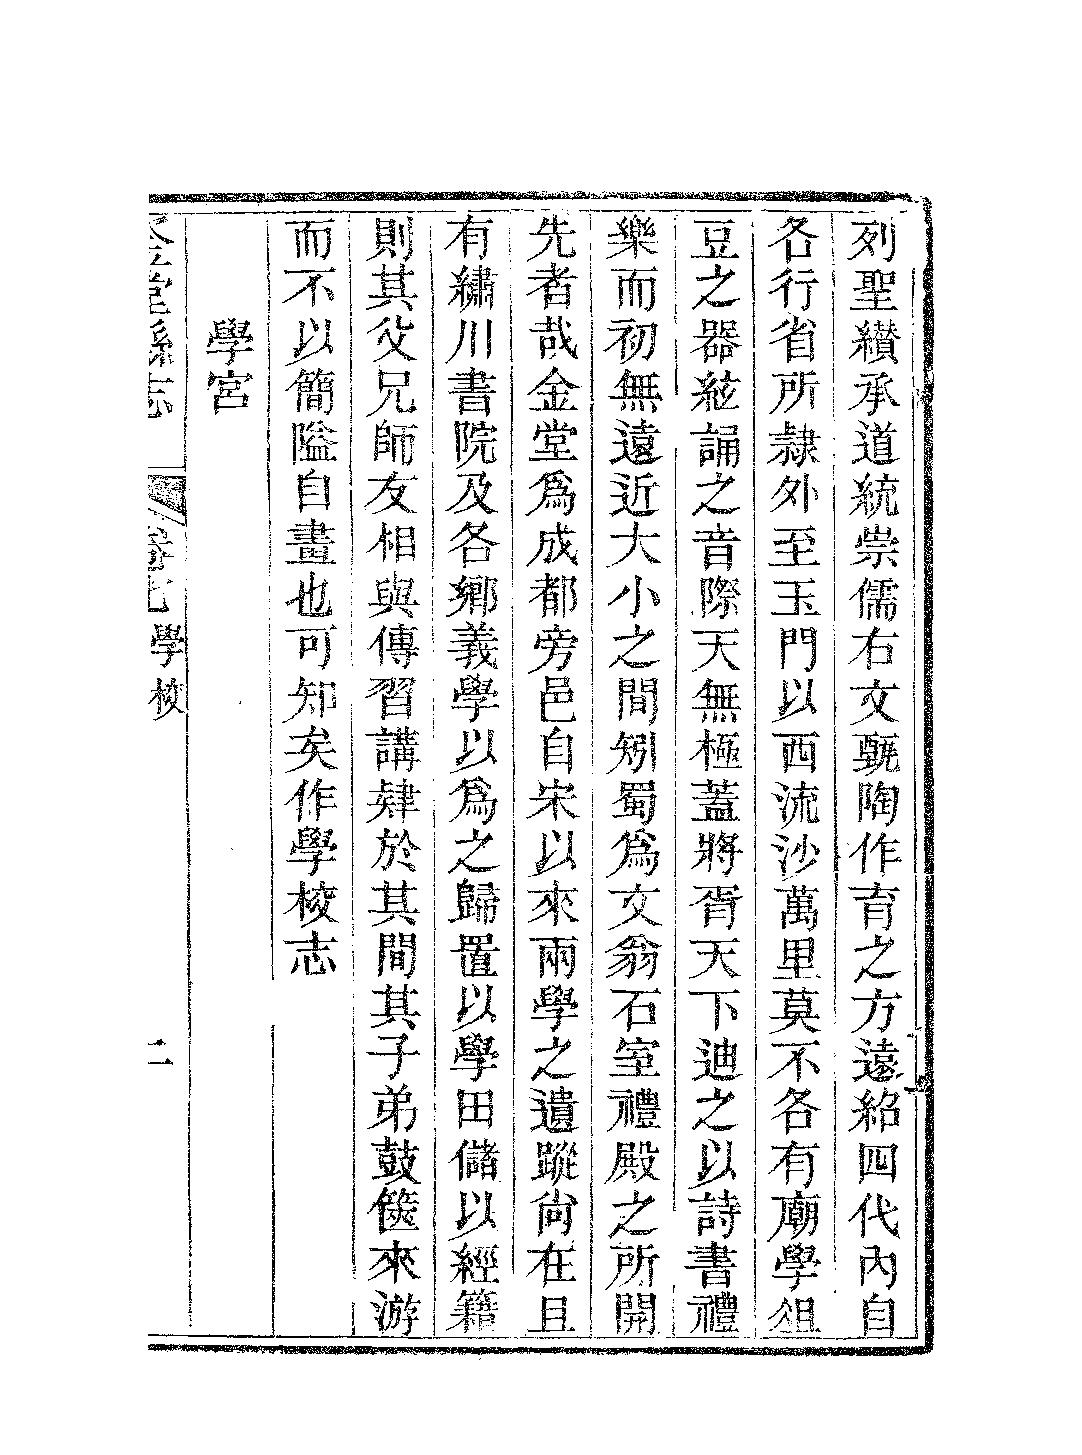 列聖纉承道統崇儒右文甄陶作育之方遠紹四代內自
各行省所隷外至玉門以西流沙萬里莫不各有廟學俎
豆之器絃誦之音際天無極蓋將胥天下迪之以詩書禮
樂而初無遠近大小之間矧蜀爲文翁石室禮殿之所開
先者哉金堂爲成都旁邑自宋以來兩學之遺蹤尙在且
有繡川書院及各鄉義學以爲之歸置以學田儲以經籍
則其父兄師友相與傳習講肄於其間其子弟鼓篋來游
而不以簡隘自畫也可知矣作學校志
學宮
堂縣志 卷七 學校 二